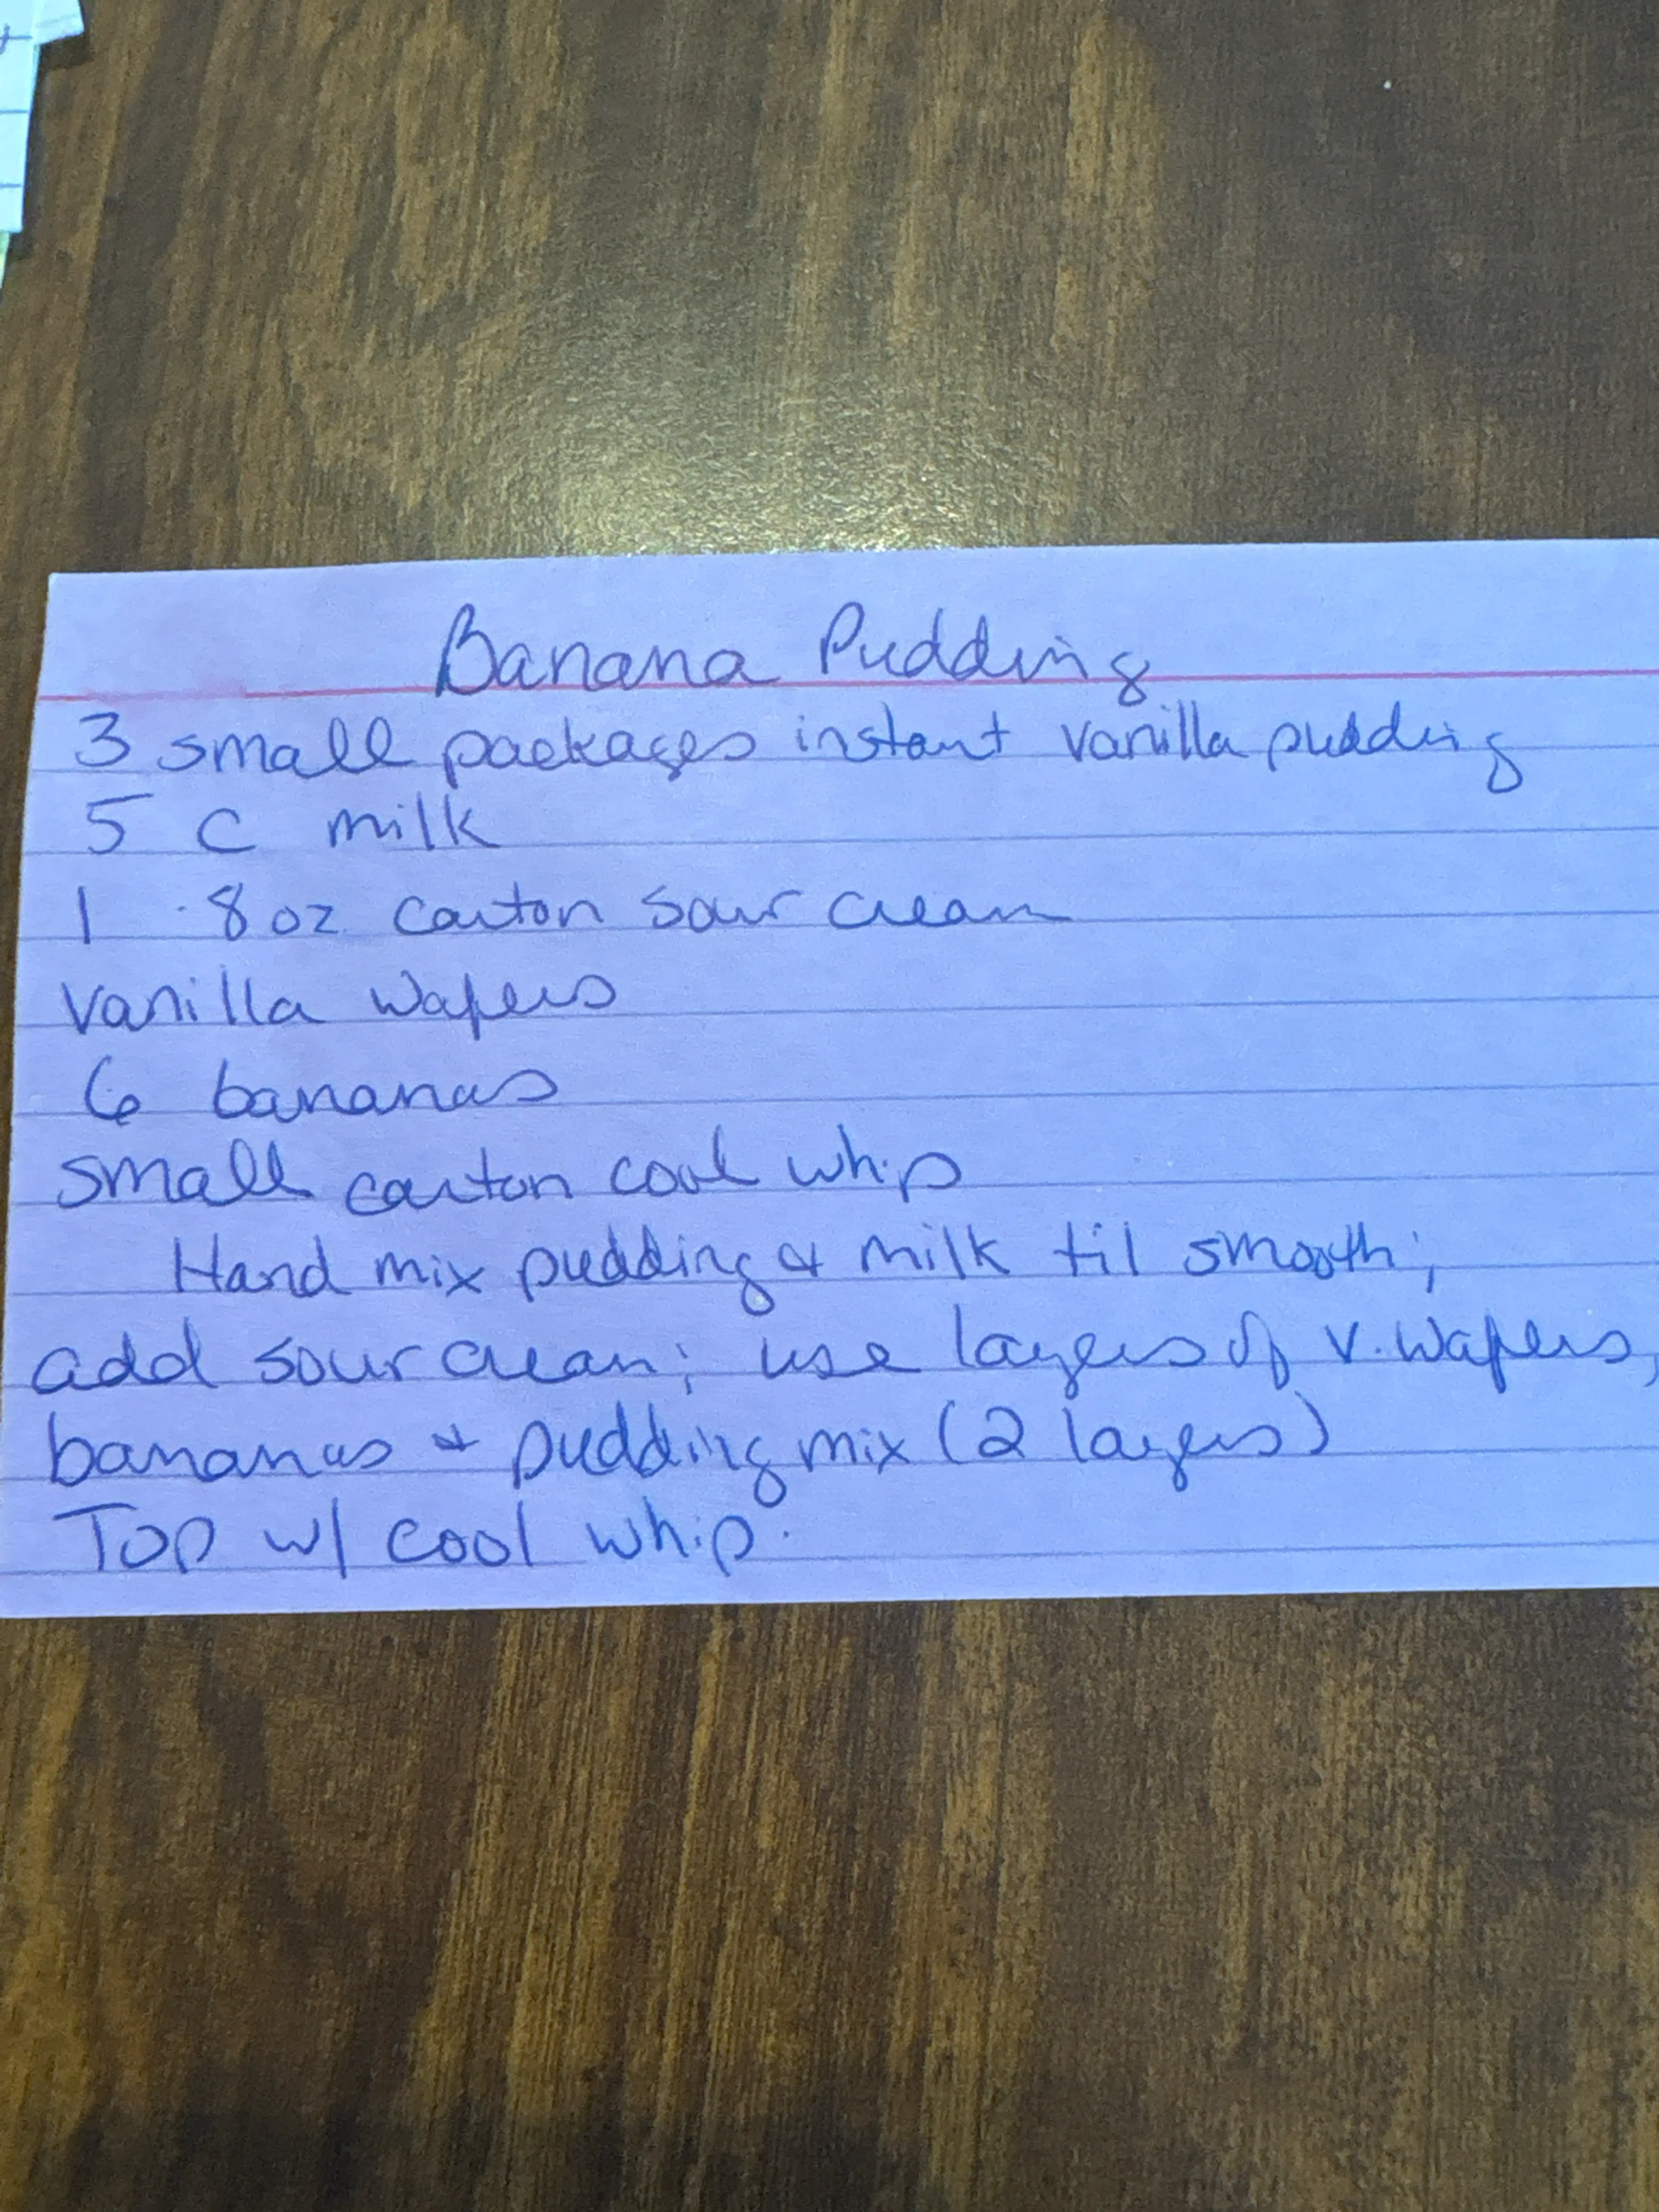 Banana Pudding
3 small packages instant vanilla pudding
5 c milk
1 8 oz carton sour cream
vanilla wafers
6 bananas
small carton cool whip
Hand mix pudding & milk til smooth;
add sour cream; use layers of v. wafers,
bananas & pudding mix (2 layers)
Top w/ cool whip.